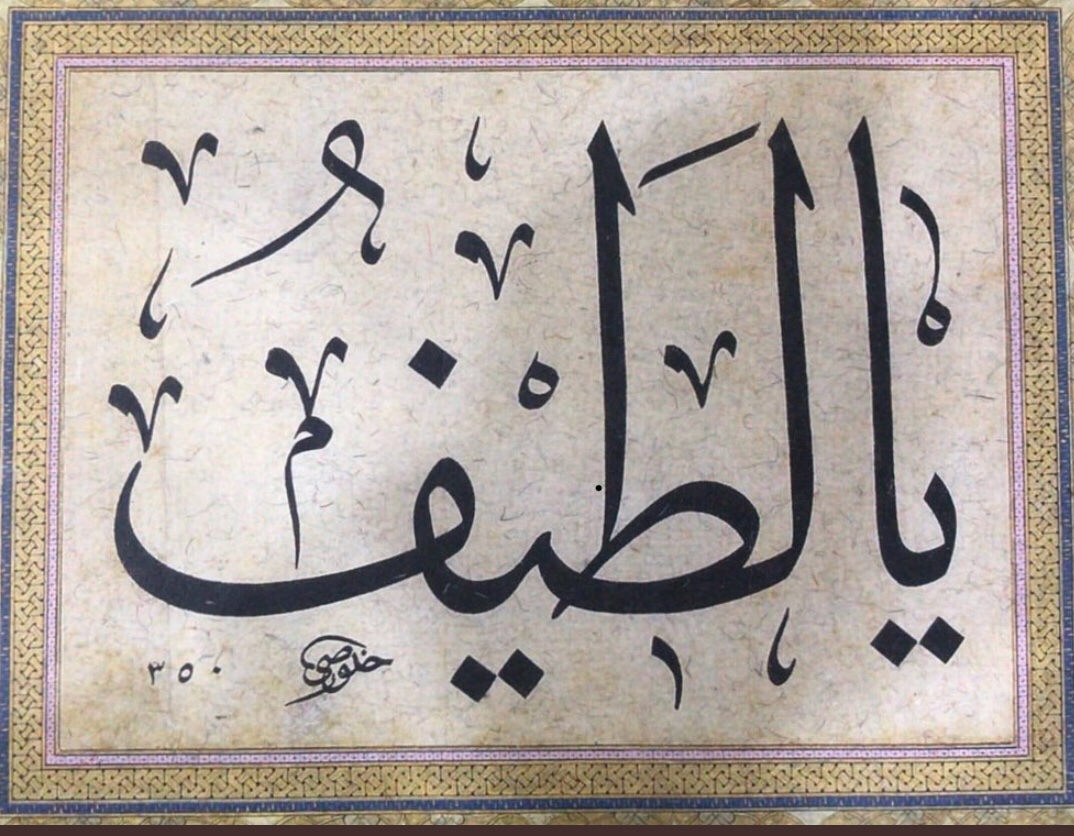 يَا لَطِيْفُ
خلوصي ٣٥٠